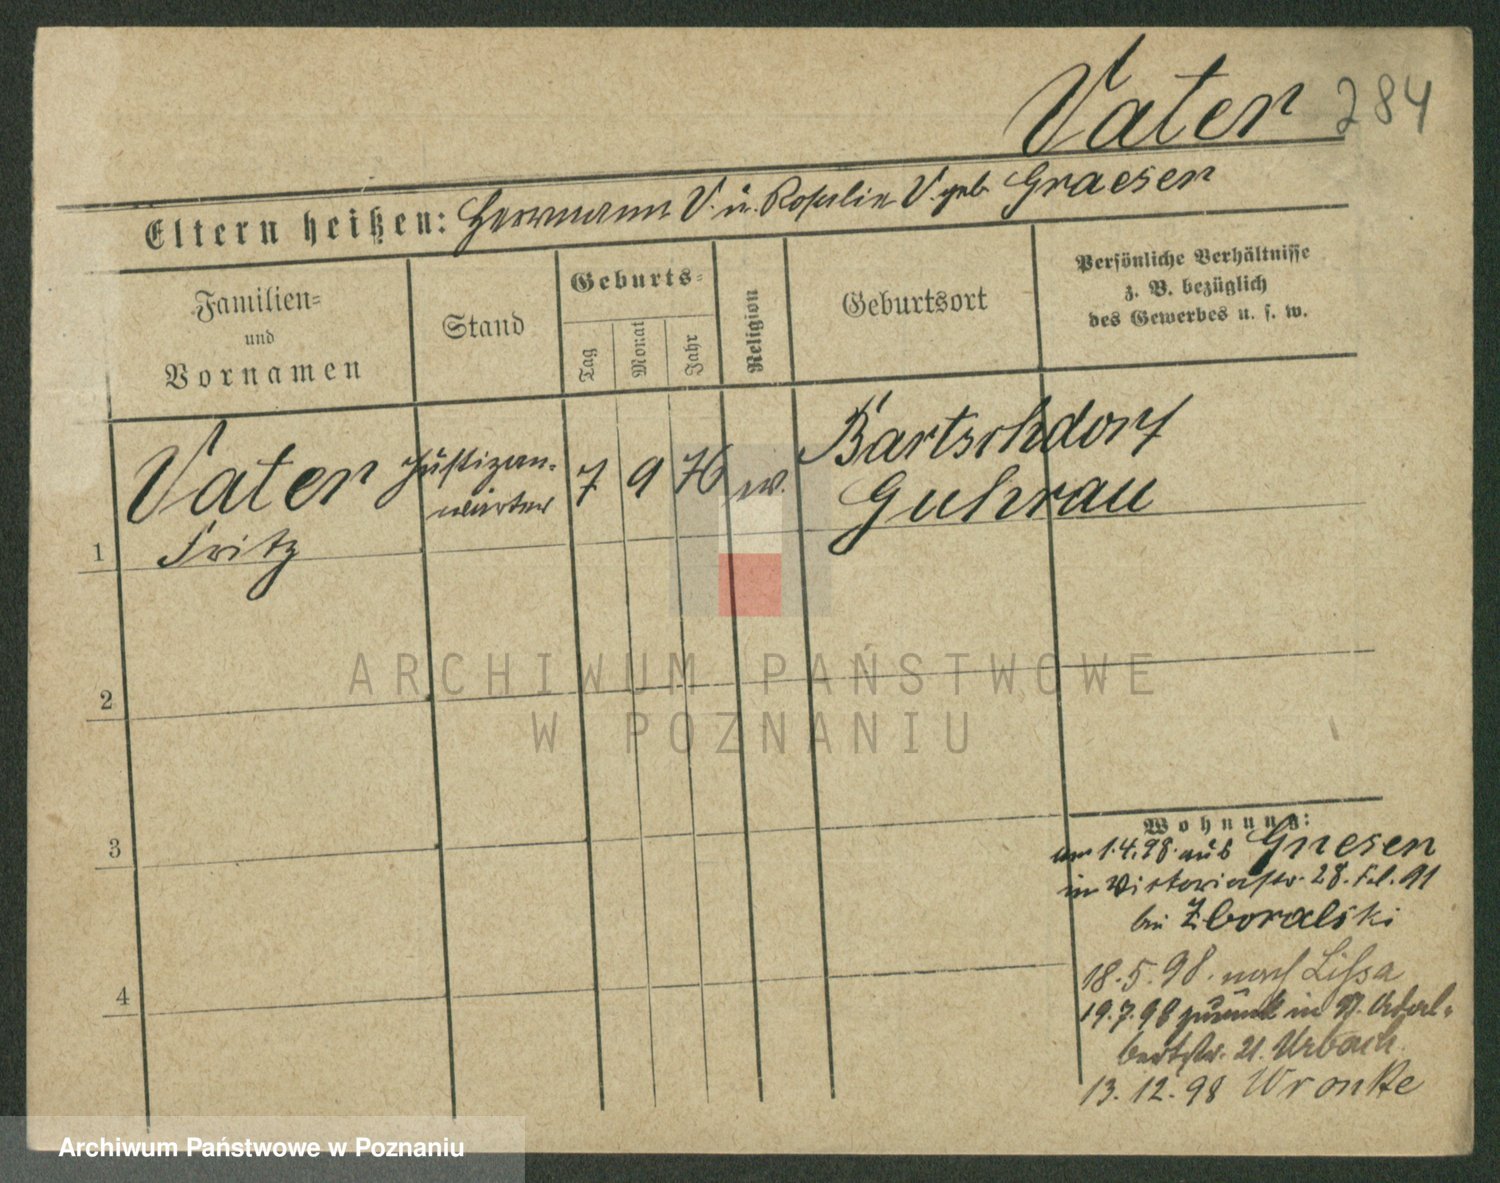 Vater 284
Eltern heißen: Herrmann V. u. Rosalie V. geb. Graeser
Familien-
und
Vornamen
Stand
Geburts-
Tag
Monat
Jahr
Religion
Geburtsort
Persönliche Verhältnisse
z. B. bezüglich
des Gewerbes u. s. w.
1
Vater
Fritz
Justizan-
wärter
7
9
76
ev.
Bartschdorf
Guhrau
2
3
4
Wohnung:
am 1.4.98 aus Gnesen
in Victoriastr. 28.
bei Zboralski
18.5.98. nach Lissa
19.7.98 zurück in St. Adal-
bertstr. 21. Urbach
13.12.98 Wronke
ARCHIWUM PAŃSTWOWE
W POZNANIU
Archiwum Państwowe w Poznaniu